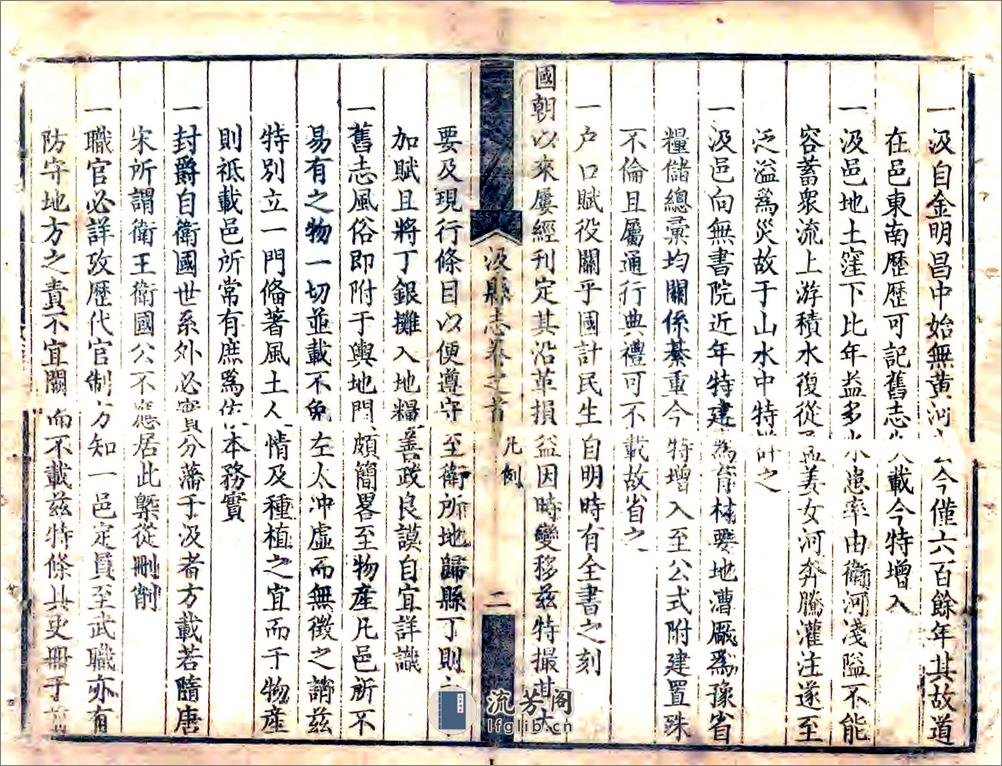 一汲自金明昌中始無黃河今僅六百餘年其故道
在邑東南歷歷可記舊志載今特增入
一汲邑地土窪下比年益多水患率由衛河淺隘不能
容蓄衆流上游積水復從孟姜女河奔騰灌注遂至
泛溢爲災故于山水中特詳之
一汲邑向無書院近年特建爲育材要地漕厰爲豫省
糧儲總彙均關係綦重今特增入至公式附建置殊
不倫且屬通行典禮可不載故省之
一户口賦役關乎國計民生自明時有全書之刻
國朝以來屢經刊定其沿革損益因時變移兹特撮其大
汲縣志卷之首 凡例 二
要及現行條目以便遵守至衛所地歸縣丁則
加賦且將丁銀攤入地糧善政良謨自宜詳識
一舊志風俗即附于輿地門頗簡畧至物產凡邑所不
易有之物一切並載不免左太冲虛而無徵之誚兹
特別立一門俻著風土人情及種植之宜而于物產
則祗載邑所常有庶爲依本務實
一封爵自衛國世系外必實分藩于汲者方載若隋唐
宋所謂衛王衛國公不應居此槩從刪削
一職官必詳攷歷代官制方知一邑定員至武職亦有
防守地方之責不宜闕而不載兹特條具史冊于前
流芳阁
lfglib.cn